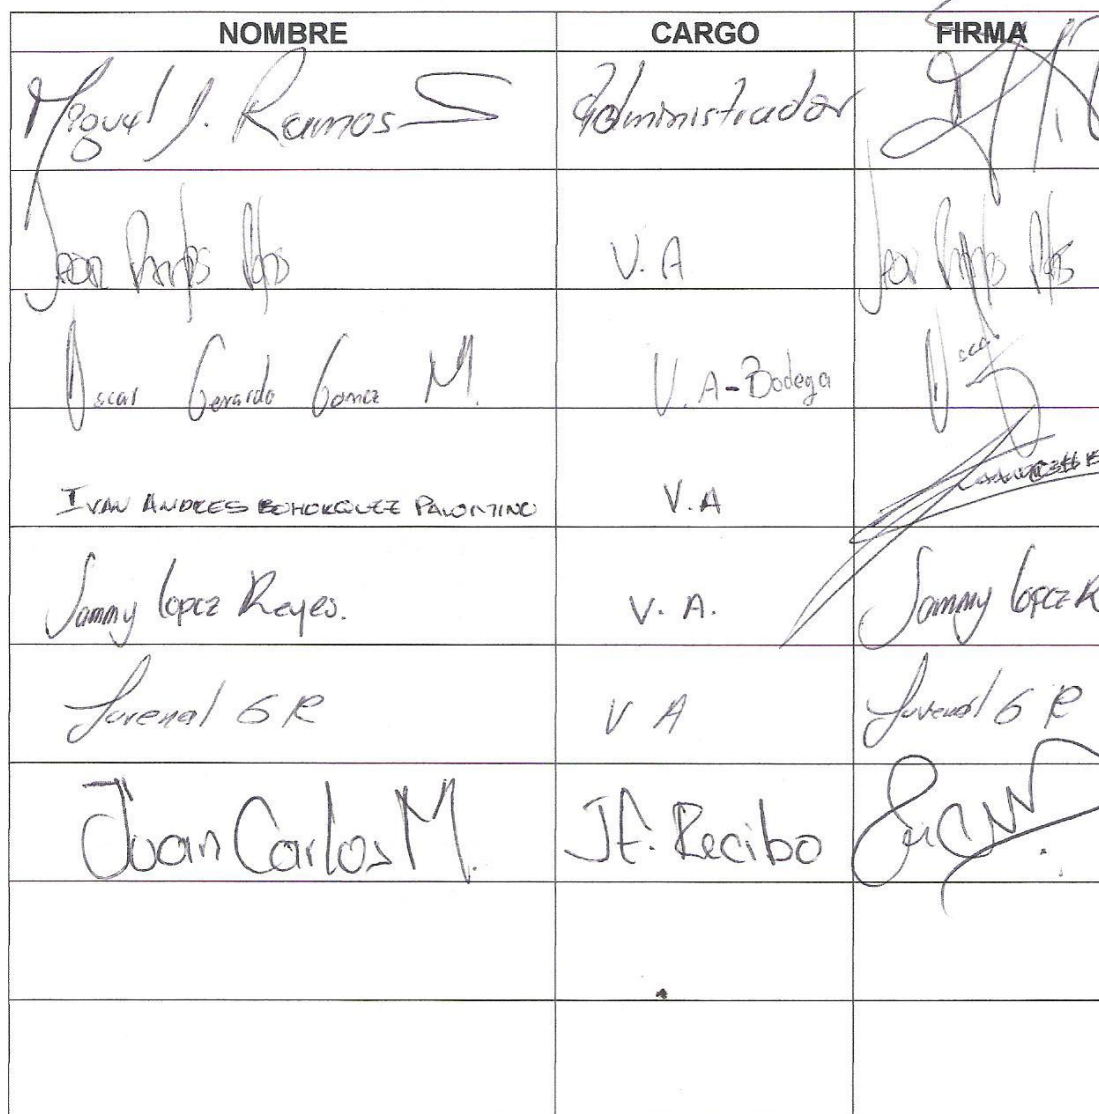 NOMBRE CARGO FIRMA
Miguel J. Ramos S Administrador
Jean V. A Jean
Oscar Gerardo Gomez M. V. A - Bodega Oscar
IVAN ANDRES BOHORQUEZ PALOMINO V. A
Sammy Lopez Reyes. V. A. Sammy Lopez R
Juvenal G R V A Juvenal G R
Juan Carlos M. Jf. Recibo